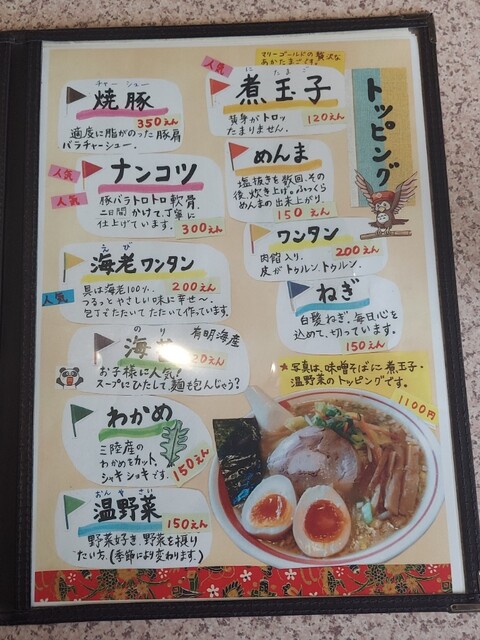 トッピング
人気
マリーゴールドの贅沢な
あかたまごです。
にたまご
煮玉子
120えん
黄身がトロッ
たまりません。
めんま
塩抜きを数回、その
後、炊き上げ。ふっくら
めんまの出来上がり。
150えん
ワンタン
200えん
肉餡入り。
皮がトゥルン、トゥルン。
ねぎ
白髪ねぎ。毎日心を
込めて、切っています。
150えん
チャーシュー
焼豚
350えん
適度に脂がのった豚肩
バラチャーシュー。
人気
人気
ナンコツ
豚バラトロトロ軟骨。
二日間かけて、丁寧に
仕上げています。
300えん
えび
海老ワンタン
200えん
人気
具は海老100%。
つるっとやさしい味に幸せ〜。
包丁でたたいてたたいて作っています。
のり
海
有明海産
20えん
お子様に人気!
スープにひたして、麺も包んじゃう?
わかめ
三陸産の
わかめをカット。
ショキショキです。
150えん
おんやさい
温野菜
150えん
野菜好き、野菜を摂り
たい方。(季節により変わります。)
★写真は、味噌そばに煮玉子・
温野菜のトッピングです。
1100円